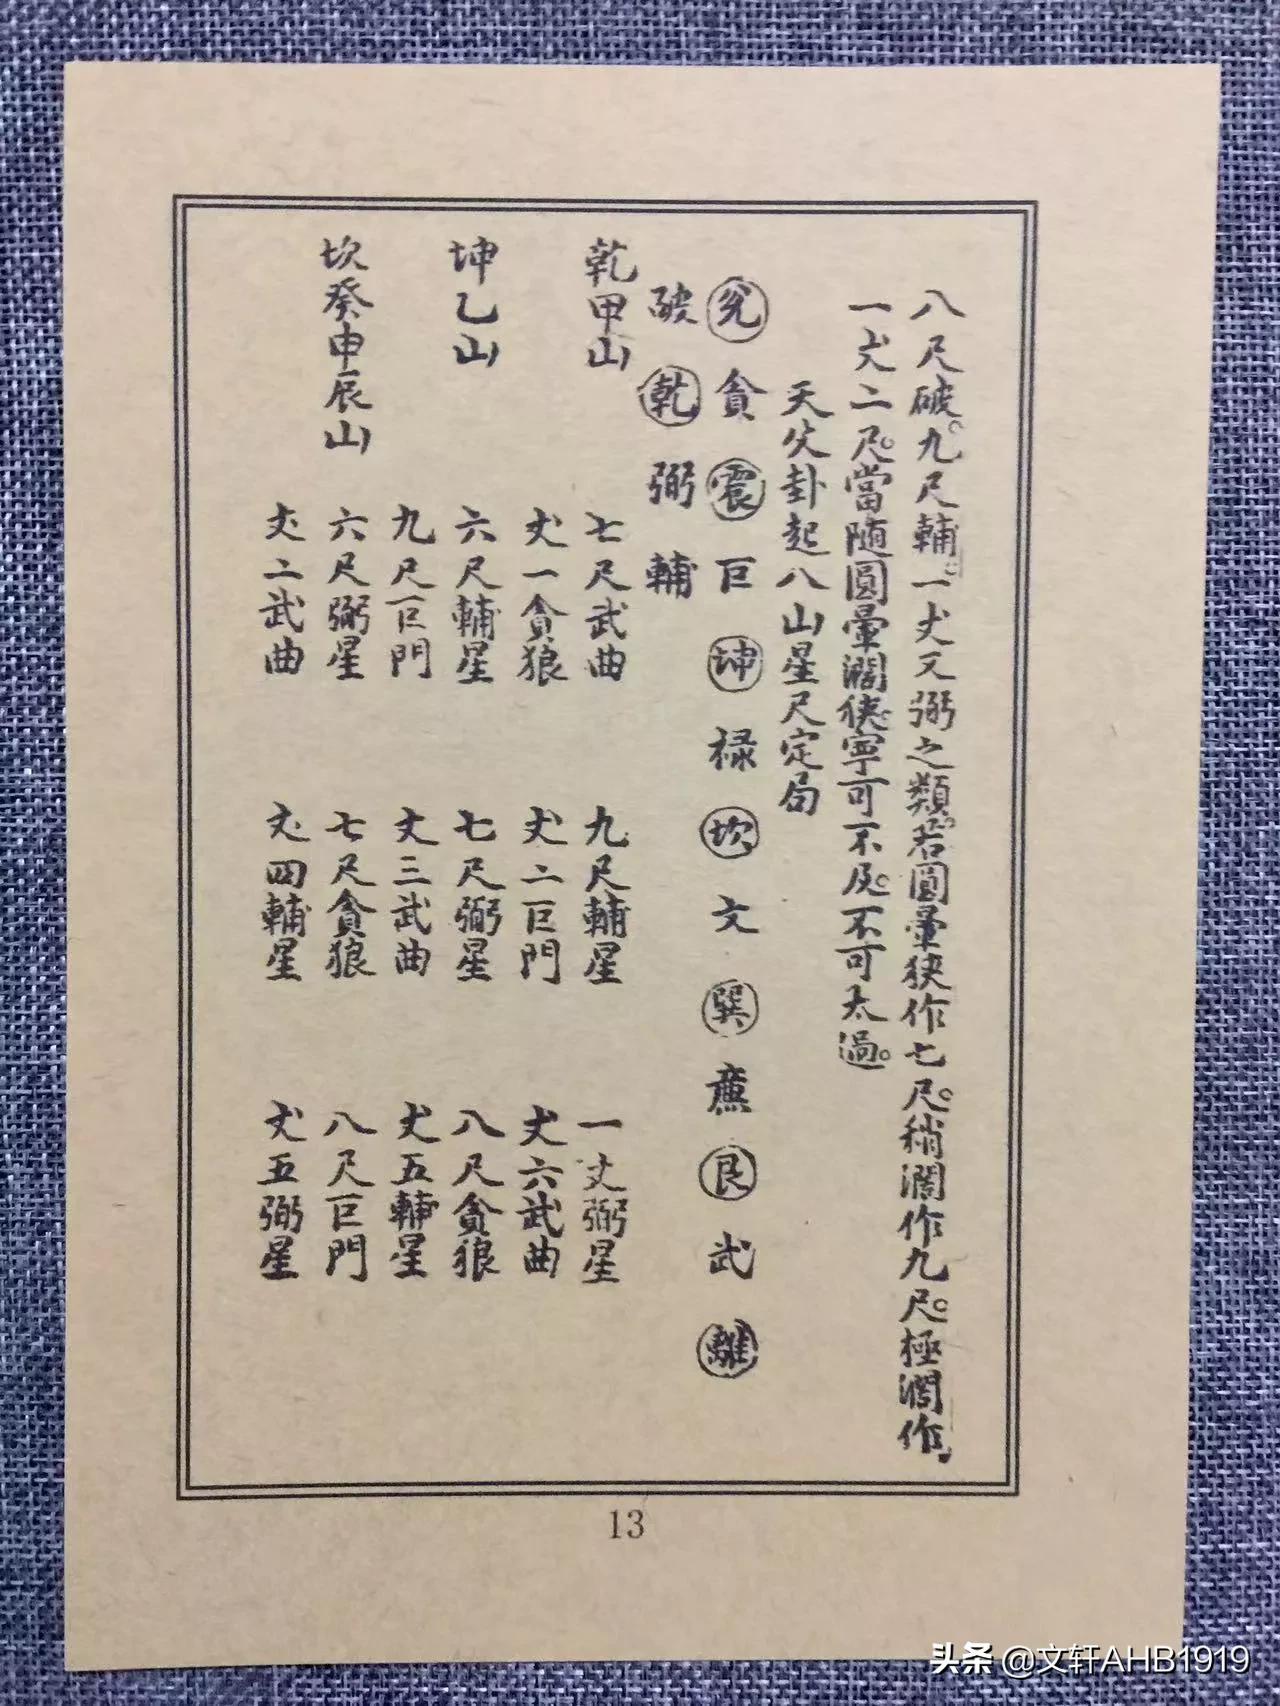 八尺破。九尺輔。一丈又弼之類。若圓暈狹作七尺。稍濶作九尺。極濶作
一丈二尺。當随圓暈濶狹。寧可不及。不可太過。
天父卦起八山星尺定局
兊 貪 震 巨 坤 禄 坎 文 巽 廉 艮 武 離
破 乾 弼 輔
乾甲山 七尺武曲 九尺輔星 一丈弼星
丈一貪狼 丈二巨門 丈六武曲
坤乙山 六尺輔星 七尺弼星 八尺貪狼
九尺巨門 丈三武曲 丈五輔星
坎癸申辰山 六尺弼星 七尺貪狼 八尺巨門
丈二武曲 丈四輔星 丈五弼星
13
头条 @文轩AHB1919